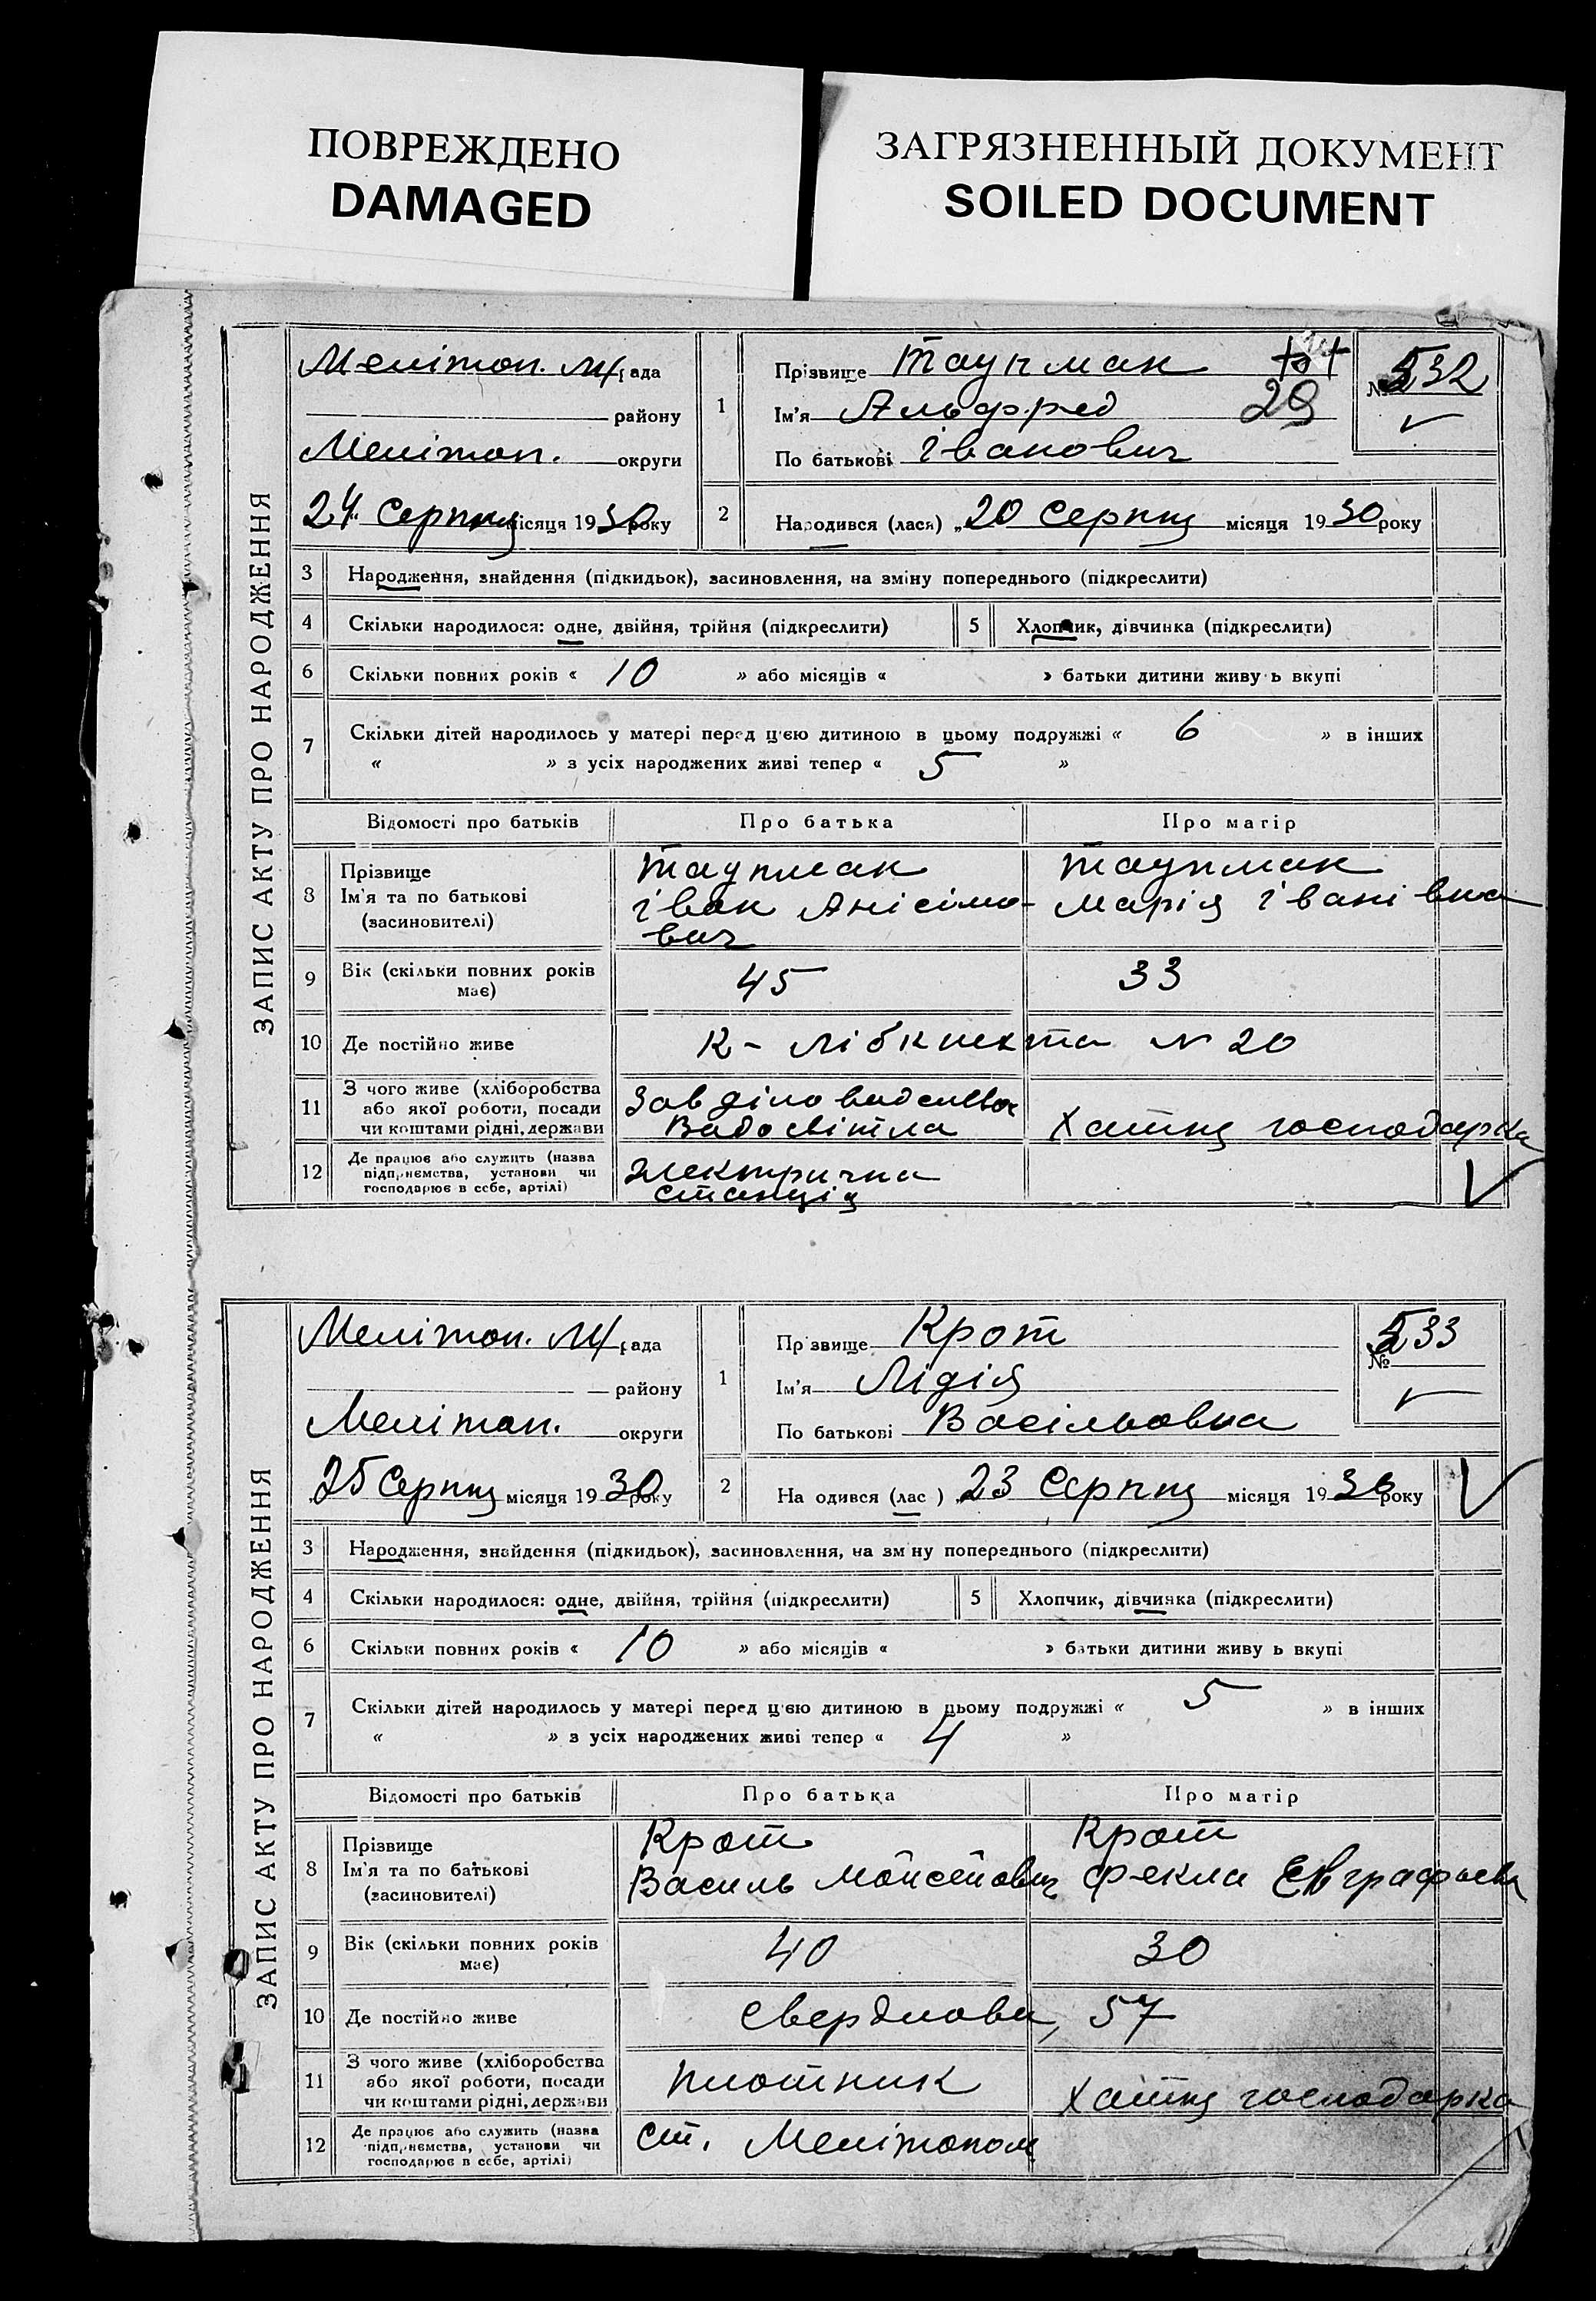 ПОВРЕЖДЕНО
DAMAGED
ЗАГРЯЗНЕННЫЙ ДОКУМЕНТ
SOILED DOCUMENT
ЗАПИС АКТУ ПРО НАРОДЖЕННЯ
Мелітоп. М/рада
району
Мелітоп. округи
24 Серпня місяця 1930 року
1
Прізвище Таупман
Ім'я Альфред 29
По батькові Іванович
№ 532
2
Народився (лася) „20 Серпня місяця 1930 року
3 Народження, знайдення (підкидьок), засиновлення, на зміну попереднього (підкреслити)
4 Скільки народилося: одне, двійня, трійня (підкреслити) 5 Хлопчик, дівчинка (підкреслити)
6 Скільки повних років « 10 » або місяців « » батьки дитини живуть вкупі
7 Скільки дітей народилось у матері перед цією дитиною в цьому подружжі « 6 » в інших
« » з усіх народжених живі тепер « 5 »
Відомості про батьків Про батька Про матір
8 Прізвище Таупман Таупман
Ім'я та по батькові Іван Анісімо- Марія Іванівна
(засиновителі) вич
9 Вік (скільки повних років має) 45 33
10 Де постійно живе К- Лібкнехта N 20
11 З чого живе (хліборобства
або якої роботи, посади
чи коштами рідні, держави
Зав діловодства
Хатня господарка
12 Де працює або служить (назва
підприємства, установи чи
господарює в себе, артілі)
Электрична
станція
ЗАПИС АКТУ ПРО НАРОДЖЕННЯ
Мелітоп. М/рада
району
Мелітоп. округи
25 Серпня місяця 1930 року
1
Прізвище Крот
Ім'я Лідія
По батькові Васільовна
№ 533
2
На одився (лас ) „23 Серпня місяця 1930 року
3 Народження, знайдення (підкидьок), засиновлення, на зміну попереднього (підкреслити)
4 Скільки народилося: одне, двійня, трійня (підкреслити) 5 Хлопчик, дівчинка (підкреслити)
6 Скільки повних років « 10 » або місяців « » батьки дитини живу ь вкупі
7 Скільки дітей народилось у матері перед цією дитиною в цьому подружжі « 5 » в інших
« » з усіх народжених живі тепер « 4 »
Відомості про батьків Про батька Про матір
8 Прізвище Крот Крот
Ім'я та по батькові Василь Мойсейович Фекла Евграфьевн
(засиновителі)
9 Вік (скільки повних років має) 40 30
10 Де постійно живе Свердлова, 57
11 З чого живе (хліборобства
або якої роботи, посади
чи коштами рідні, держави
плотник
Хатня господарка
12 Де працює або служить (назва
підприємства, установи чи
господарює в себе, артілі)
ст. Мелітополь